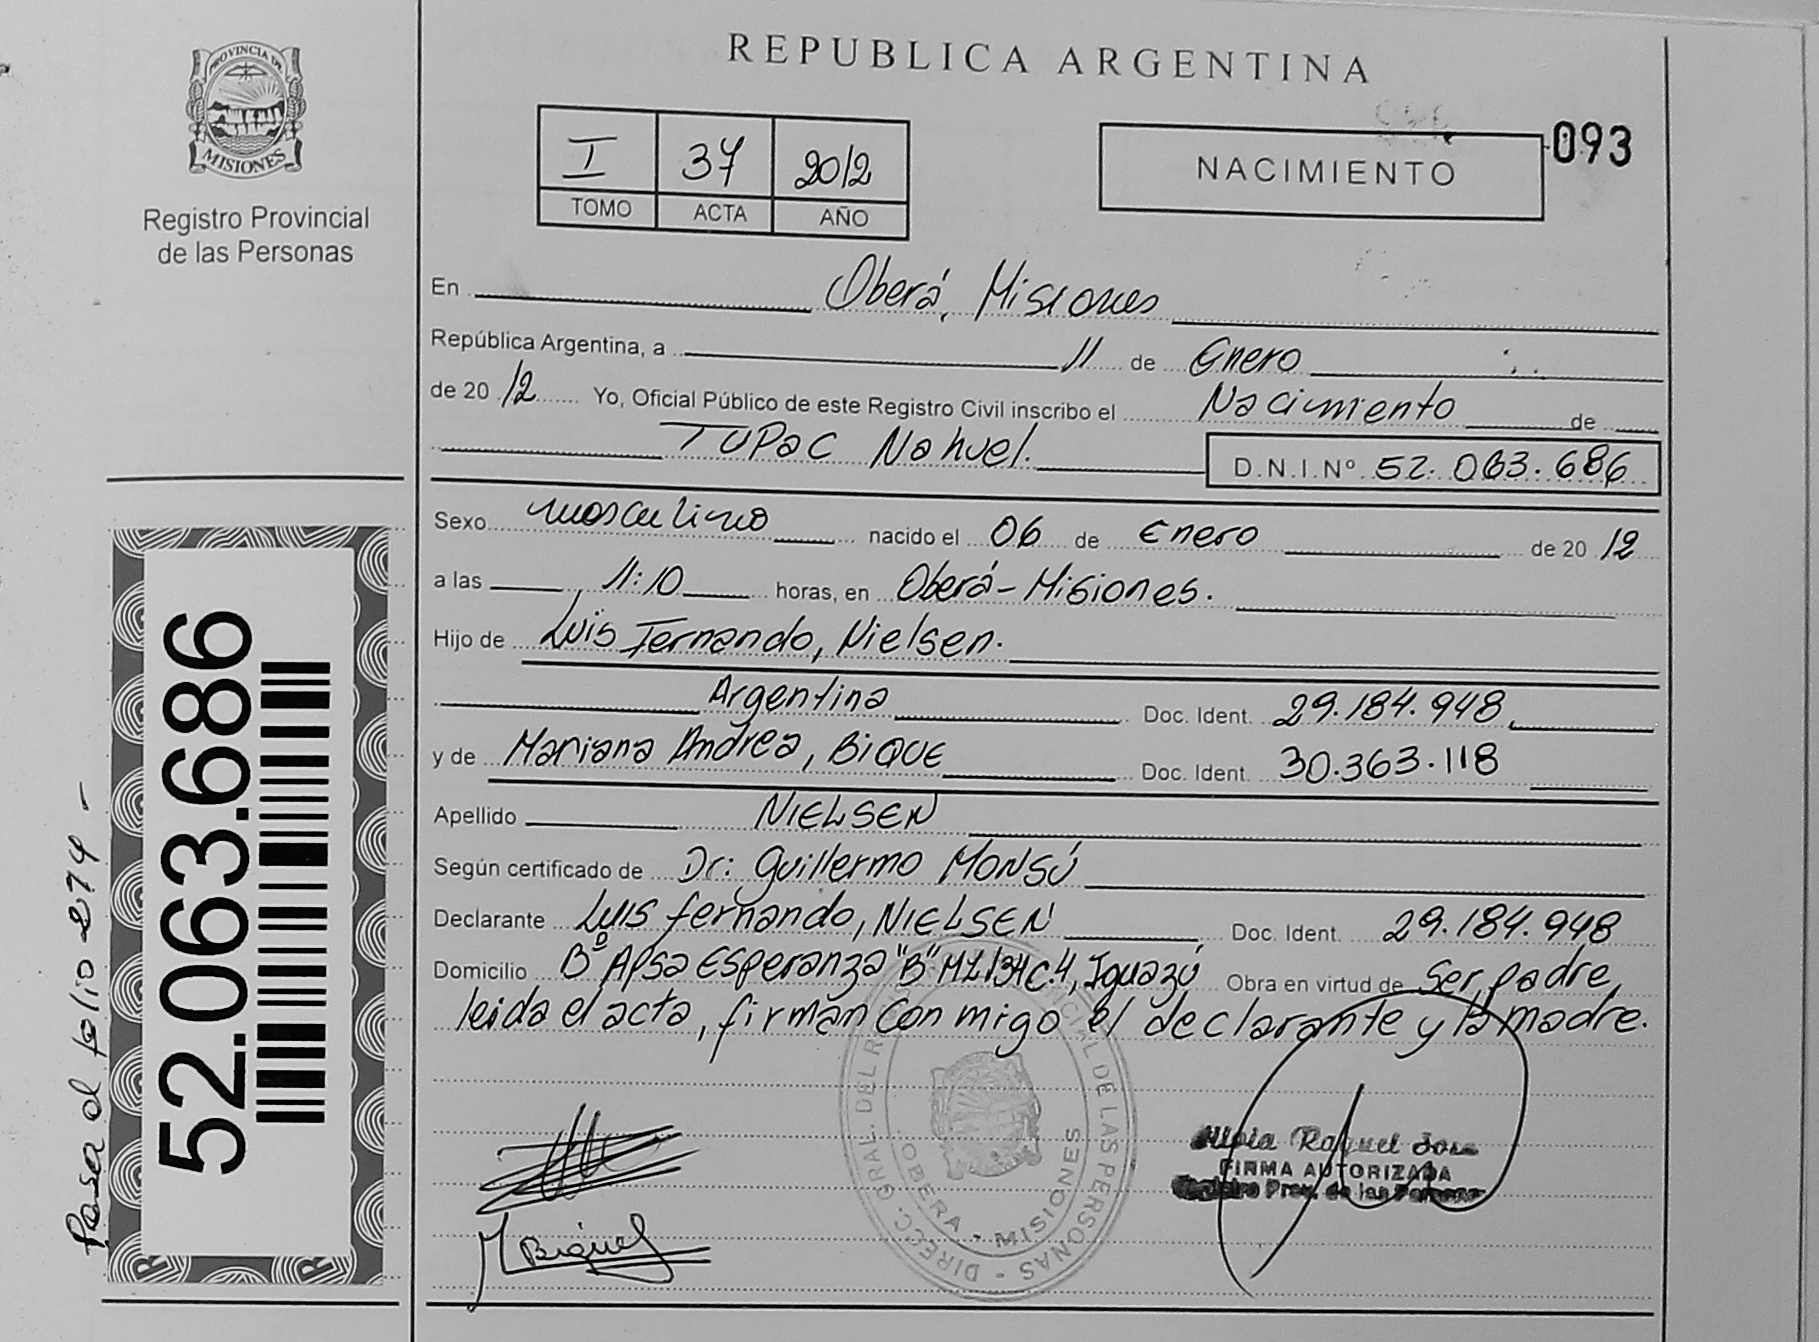 PROVINCIA DE
MISIONES
Registro Provincial
de las Personas
REPUBLICA ARGENTINA
I 37 2012
TOMO ACTA AÑO
NACIMIENTO
093
En Oberá, Misiones
República Argentina, a 11 de Enero
de 2012 Yo, Oficial Público de este Registro Civil inscribo el Nacimiento de
TUPaC Nahuel. D.N.I.Nº 52.063.686
Sexo masculino nacido el 06 de Enero de 2012
a las 11:10 horas, en Oberá-Misiones.
Hijo de Luis Fernando, Nielsen.
Argentina Doc. Ident. 29.184.948
y de Mariana Andrea, BiQUE Doc. Ident. 30.363.118
Apellido NIELSEN
Según certificado de Dr: Guillermo MONSÚ
Declarante Luis fernando, NIELSEN Doc. Ident. 29.184.948
Domicilio Bº Apsa Esperanza "B" MZ134C.4, Iguazú Obra en virtud de Ser padre,
leida el acta, firman conmigo el declarante y la madre.
DIRECC. GRAL. DEL REG. PROVINCIAL DE LAS PERSONAS
OBERA - MISIONES
Raquel
FIRMA AUTORIZADA
Registro Prov. de las Personas
M Bique
52.063.686
Pasa al folio 274 -